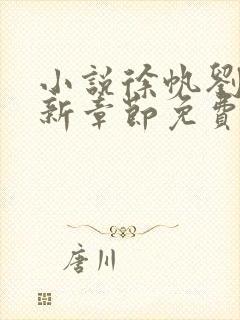 小説徐帆劉
新章節免費
唐川